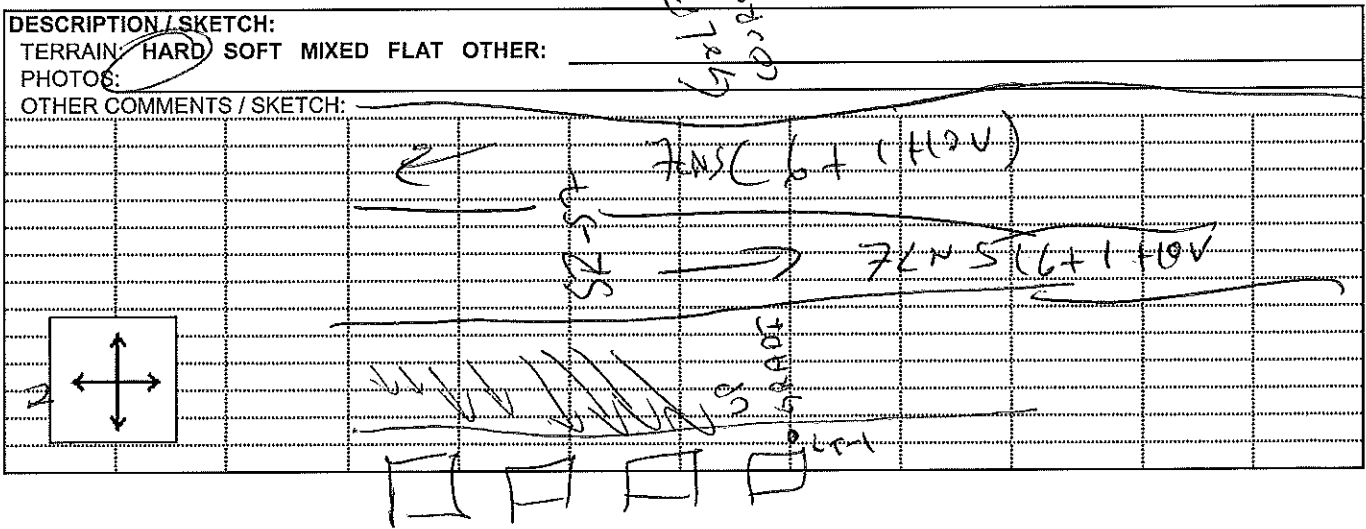 DESCRIPTION / SKETCH:
TERRAIN: HARD SOFT MIXED FLAT OTHER:
PHOTOS:
OTHER COMMENTS / SKETCH:
7LNS( 6+ 1 HOV)
SR-57
7LNS (6+1 HOV
UP
GRADE
LT-1
N